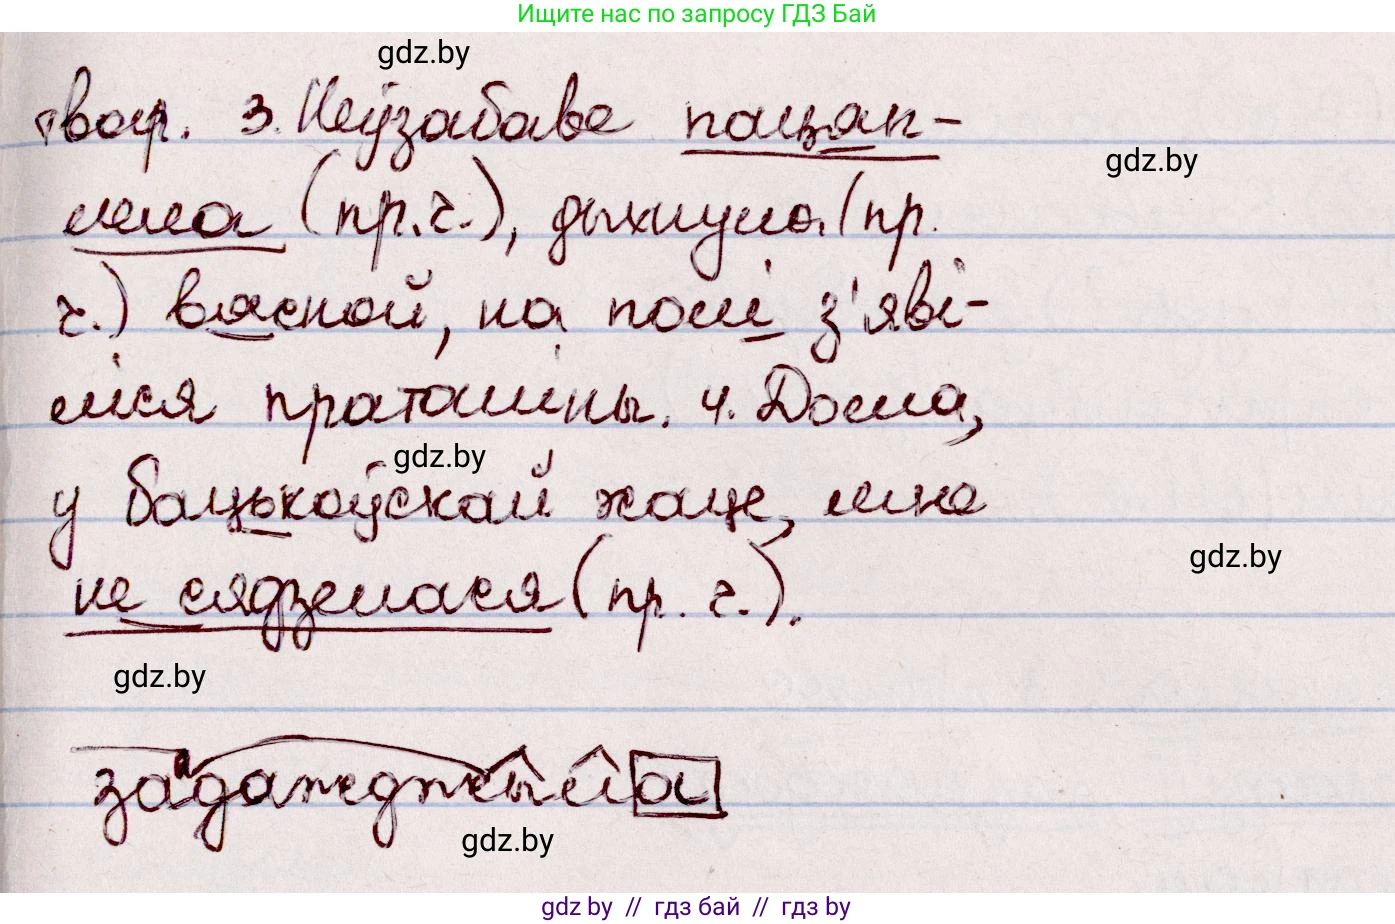 Ищите нас по запросу ГДЗ Бай
gdz.by
твар. 3. Неўзабаве пацяп-
gdz.by
лела (пр.ч.), дыхнула (пр.
ч.) вясной, на полі з'яві-
ліся праталіны. 4. Дома,
gdz.by
у бацькоўскай хаце, мне
gdz.by
не сядзелася (пр. ч.).
gdz.by
задажджыла
gdz.by
gdz by // гдз бай // гдз by